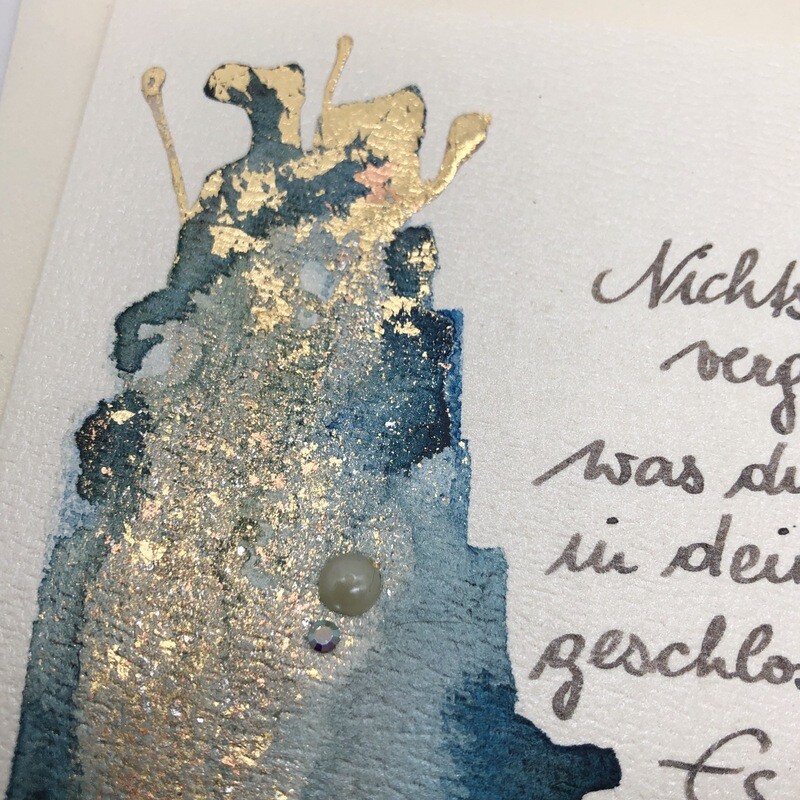 Nichts
verg
was du
in dein
geschlos
Es